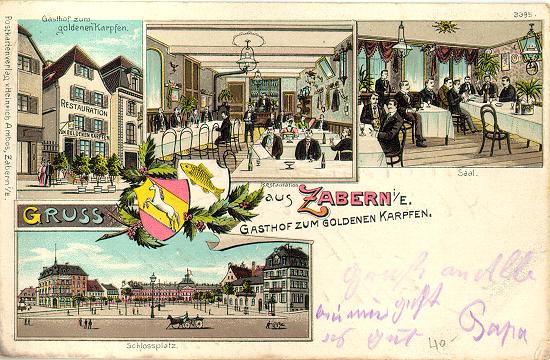 Gasthof zum
goldenen Karpfen.
3395.
Postkartenverlag v. Heinrich Amboos, Zabern i/E.
RESTAURATION
ZUM GOLDENEN KARPFEN
Restauration.
Saal.
GRUSS
aus ZABERN i/E.
GASTHOF ZUM GOLDENEN KARPFEN.
Schlossplatz.
Gruß an Alle
mir geht
es gut Papa
40-